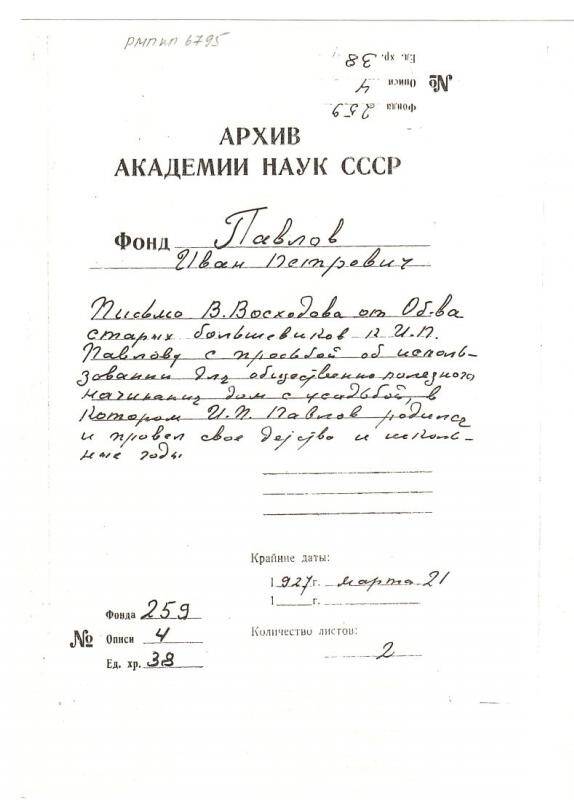 РМПИП 6795
Ед. хр. 38
№ Описи 4
Фонда 259
АРХИВ
АКАДЕМИИ НАУК СССР
Фонд Павлов
Иван Петрович
Письмо В. Восходова от Об-ва
старых большевиков к И.П.
Павлову с просьбой об исполь-
зовании для общественно полезного
начинания дом с усадьбой, в
котором И.П. Павлов родился
и провел свое детство и школь-
ные годы
Крайние даты:
1927г. марта 21
1 г.
Количество листов:
2
Фонда 259
№ Описи 4
Ед. хр. 38